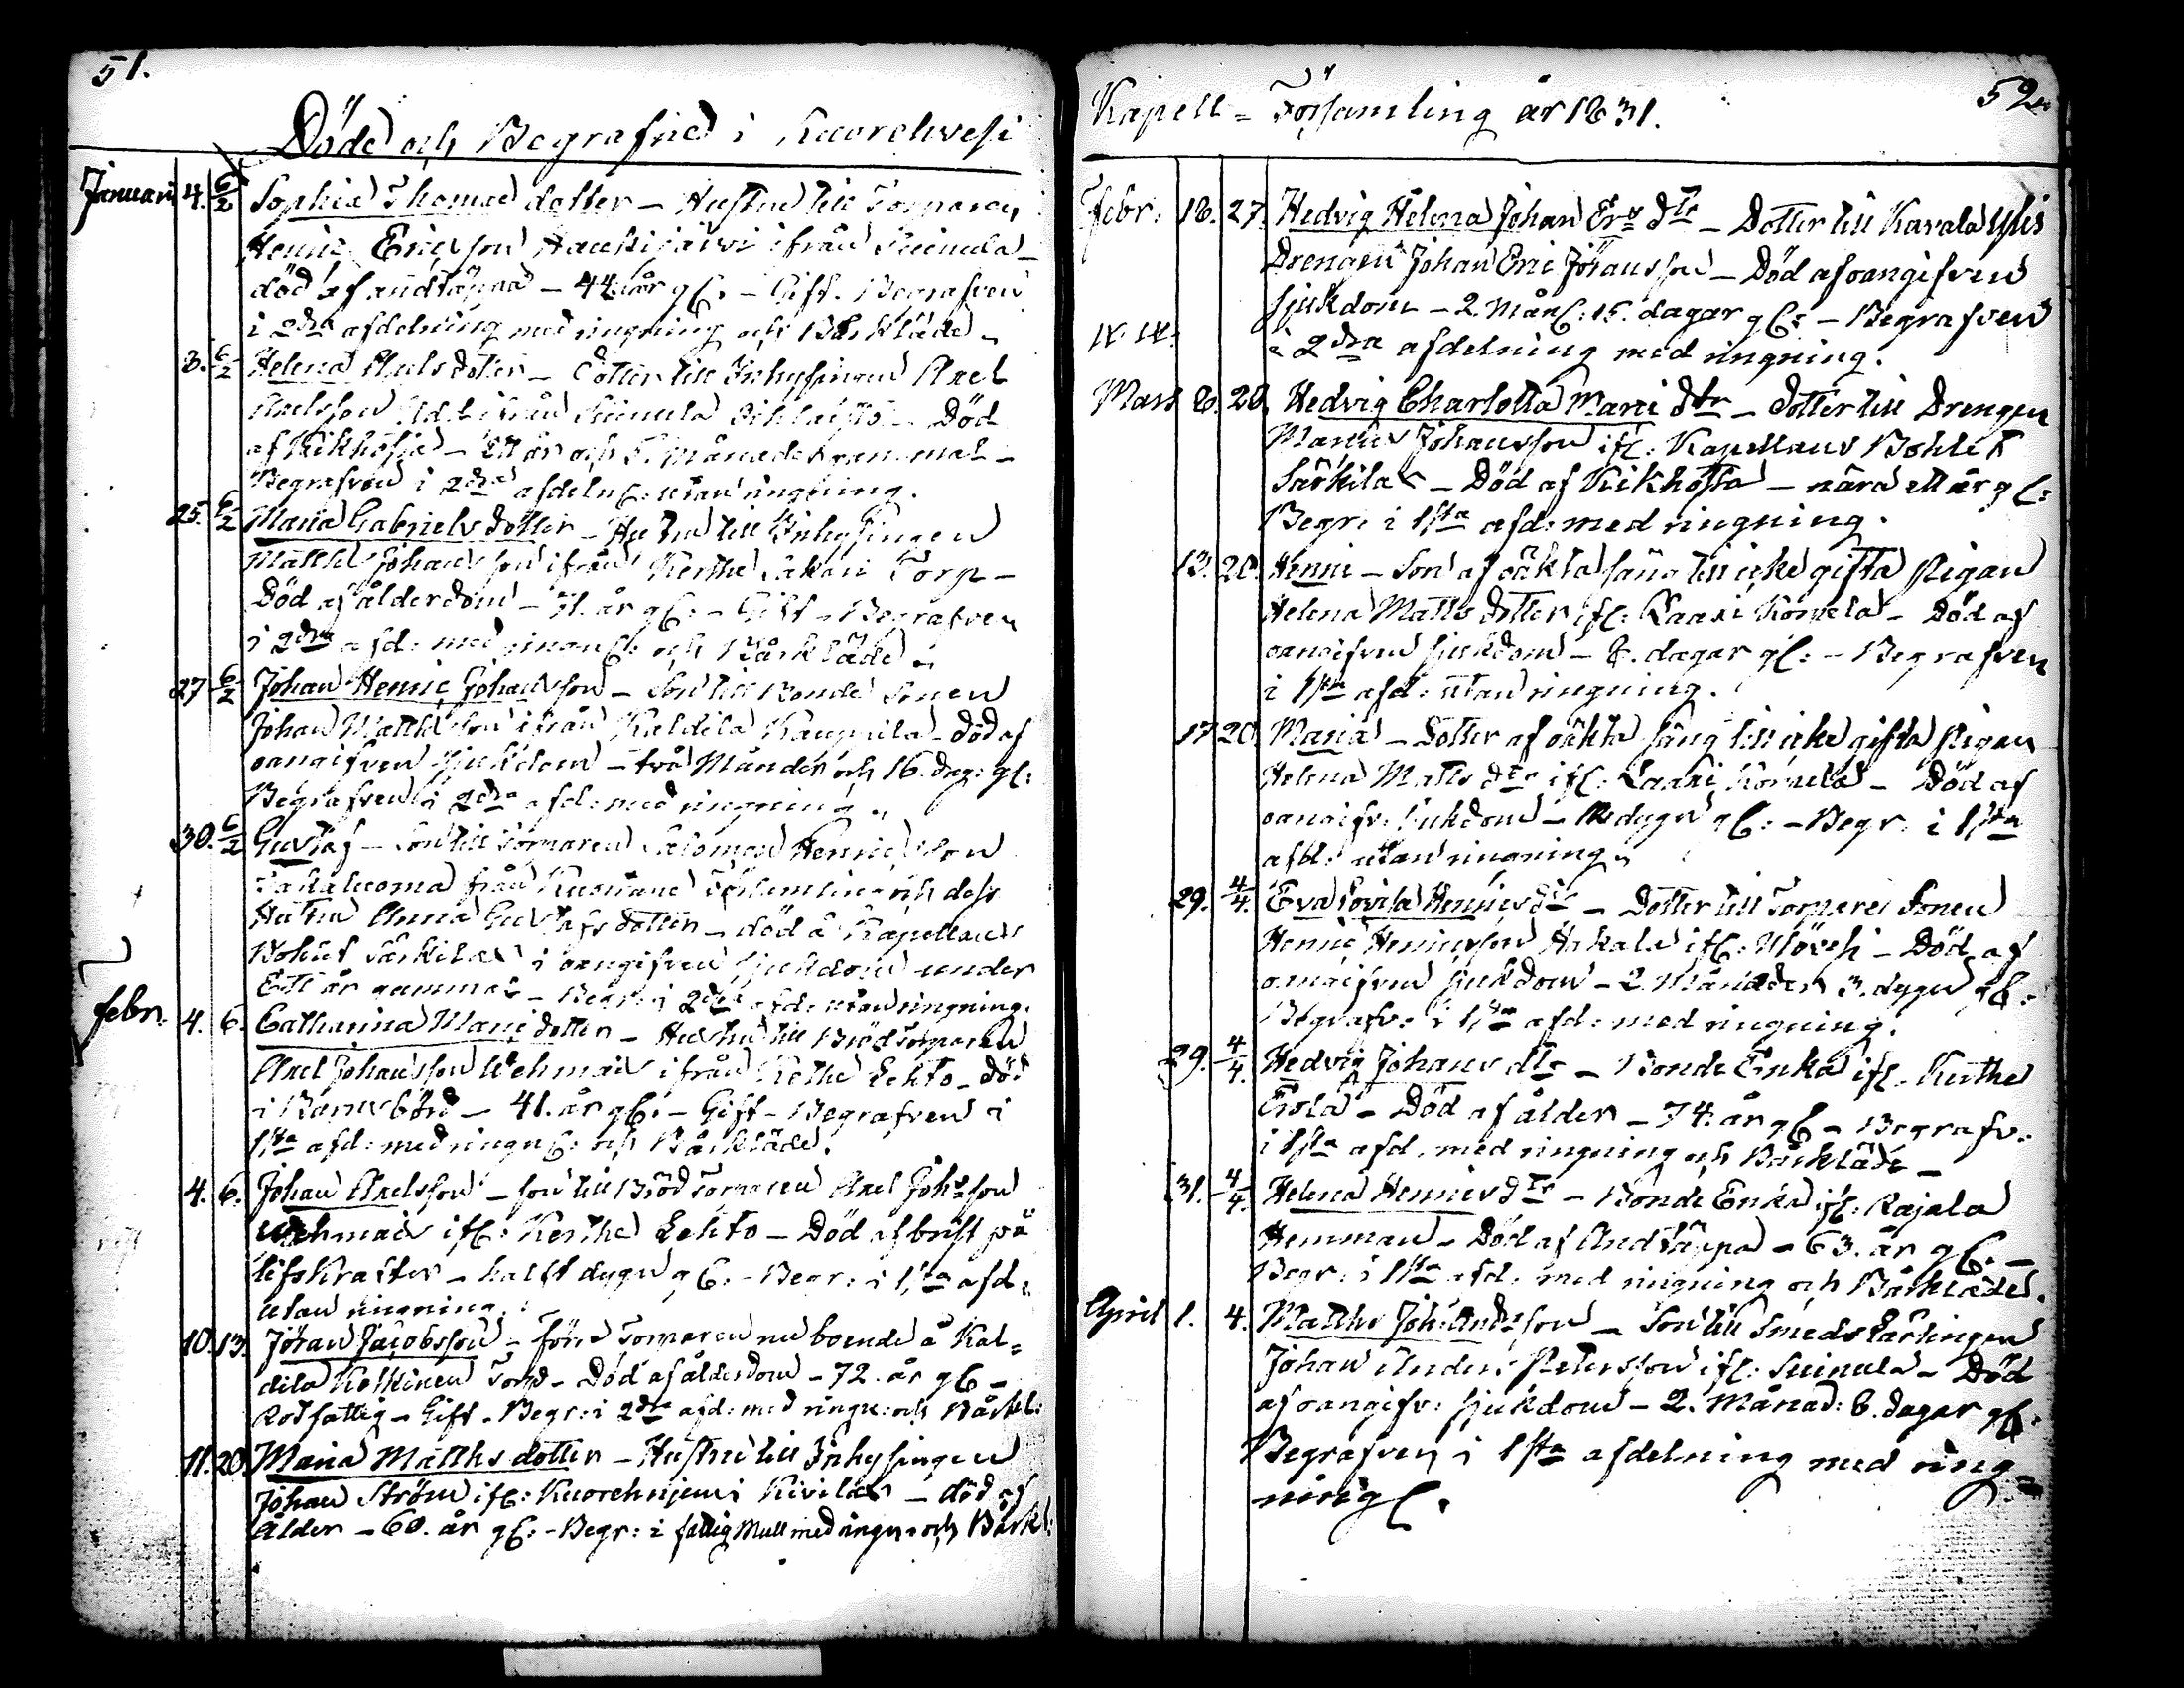 51.
Döde och Begrafne i Kuorehvesi
Januari 4. 6/2 Sophia Thomae dotter – Hustru till Torparen
Henric Ericsson Haukijärvi ifrån Suinula –
död af andtäppa – 44. år gl: – Gift. Begrafven
i 2dra afdelning med ringning och Bårkläde –
3. 6/2 Helena Axels dotter – Dotter till Inhysingen Axel
Axelsson ifrån Suinula – Död
af Kikhosta – Ett år och 5. månader gammal –
Begrafven i 2dra afdeln: utan ringning.
25. 6/2 Maria Gabriels dotter – Hustru till Inhysingen
Matths Johansson ifrån Kerthe Torp –
Död af ålderdom – 71. år gl: – Gift – Begrafven
i 2dra afd: med ringn: och Bårkläde –
27 6/2 Johan Henric Johansson – Son till Bonde Sonen
Johan Matthsson ifrån Kaldila Kaupila – död af
oangifven Sjukdom – två Månder och 16. dag: gl:
Begrafven i 2dra afd: med ringning.
30. 6/2 Gustaf – Son till Torparen Salomon Henricsson
från Kuorhane Församling och dess
Hustru Anna Gustafs dotter – död å Kapellans
Bohlet Särkilax i oangifven Sjukdom under
Ett år gammal – Begr: i 2dra afd: utan ringning.
Febr. 4. 6. Catharina Marci dotter – Hustru till Brödtorparen
Axel Johansson Wehmais ifrån Kerthe Lehto – Död
i Barnsbörd – 41. år gl: – Gift – Begrafven i
1sta afd: med ringn: och Bårkläde.
4. 6. Johan Axelsson – Son till Brödtorparen Axel Johsson
Wehmais ifl: Kerthe Lehto – Död af brist på
lifskrafter – halft dygn gl: – Begr: i 1sta afd:
utan ringning.
10. 13. Jöran Jacobsson – förra Torparen nu boende å Kal=
dila Koskinen Torp – Död af ålderdom – 72. år gl –
Rotfattig – Gift – Begr: i 2dra afd: med ringn: och Bårkl:
11. 20. Maria Matths dotter – Hustru till Inhysingen
Johan Ström ifl: Kuorehniemi Kivilax – död af
Ålder – 60. år gl: – Begr: i fattig Mull med ringn: och Bårkl:
Kapell = Församling år 1831. 52.
Febr: 18. 27. Hedvig Helena Johan Ers dtr – Dotter till Karala Ylis
Drengen Johan Eric Jöransson – Död af oangifven
Sjukdom – 2. mån: 15. dagar gl: – Begrafven
i 2dra afdelning med ringning.
Mars 8. 20. Hedvig Charlotta Marci dtr – Dotter till Drengen
Marcus Johansson ifl: Kapellans Bohlet
Särkilax – Död af Kikhosta – nära ett år gl:
Begr: i 1sta afd: med ringning.
13. 20. Henric – Son af oäkta säng till icke gifta Pigan
Helena Matts dotter ifl: Laari Korpela – Död af
oangifven Sjukdom – 8. dagar gl: – Begrafven
i 1sta afd: utan ringning.
17 20. Maria – Dotter af oäkta säng till icke gifta Pigan
Helena Matts dtr ifl: Laari Korpela – Död af
oangifv: Sjukdom – dygn gl: – Begr: i 1sta
afd: utan ringning.
29. 4/4. Eva Lovisa Henrics dtr – Dotter till Torpare Sonen
Henric Henricsson Hakala ifl: – Död af
oangifven Sjukdom – 2. Månader 3. dygn gl:
Begrafv: i 1sta afd: med ringning.
29. 4/4. Hedvig Johans dtr – Bonde Enka ifl: Kerthe
Erola – Död af ålder – 74. år gl – Begrafv:
i 1sta afd. med ringning och Bårkläde –
31. 4/4. Helena Henrics dtr – Bonde Enka ifl: Rajala
Hemman – Död af Andtäppa – 63. år gl: –
Begr: i 1sta afd: med ringning och Bårkläde.
April 1. 4. Matths Joh: Andsson – Son till Smeds Lärlingen
Johan Anders Petersson ifl: Suinula – Död
af oangifv: Sjukdom – 2. Månad: 8. dagar gl:
Begrafven i 1sta afdelning med ring=
ning.